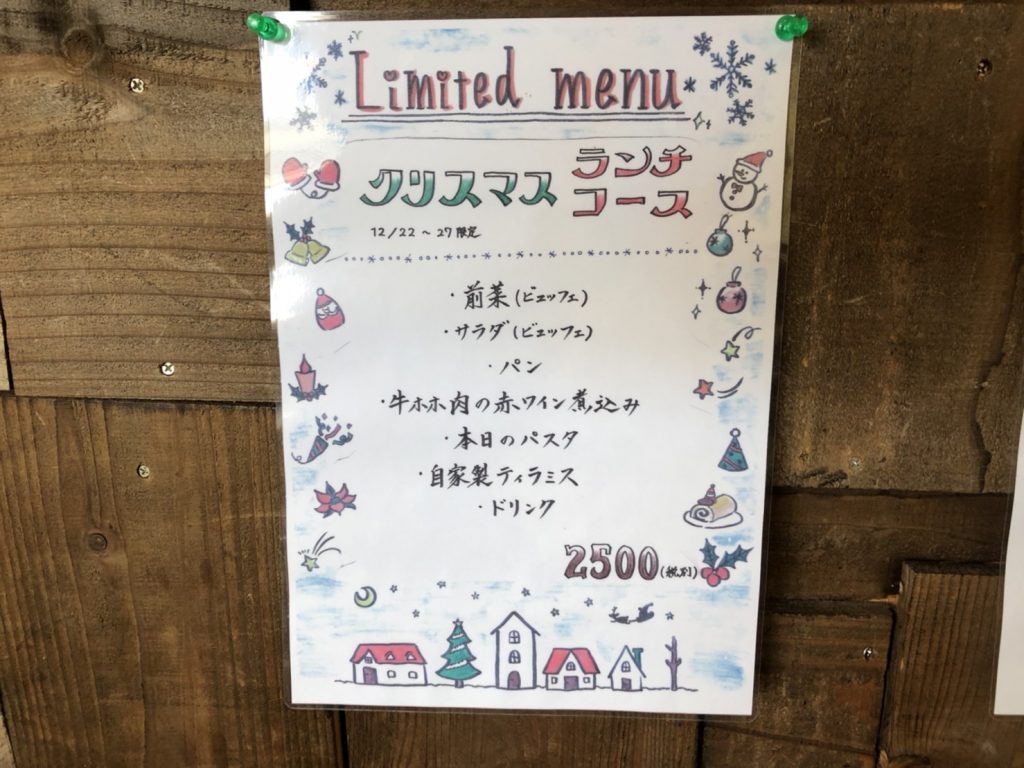 Limited menu
クリスマス ランチ
コース
12/22 ～ 27 限定
・前菜(ビュッフェ)
・サラダ(ビュッフェ)
・パン
・牛ホホ肉の赤ワイン煮込み
・本日のパスタ
・自家製ティラミス
・ドリンク
2500(税別)